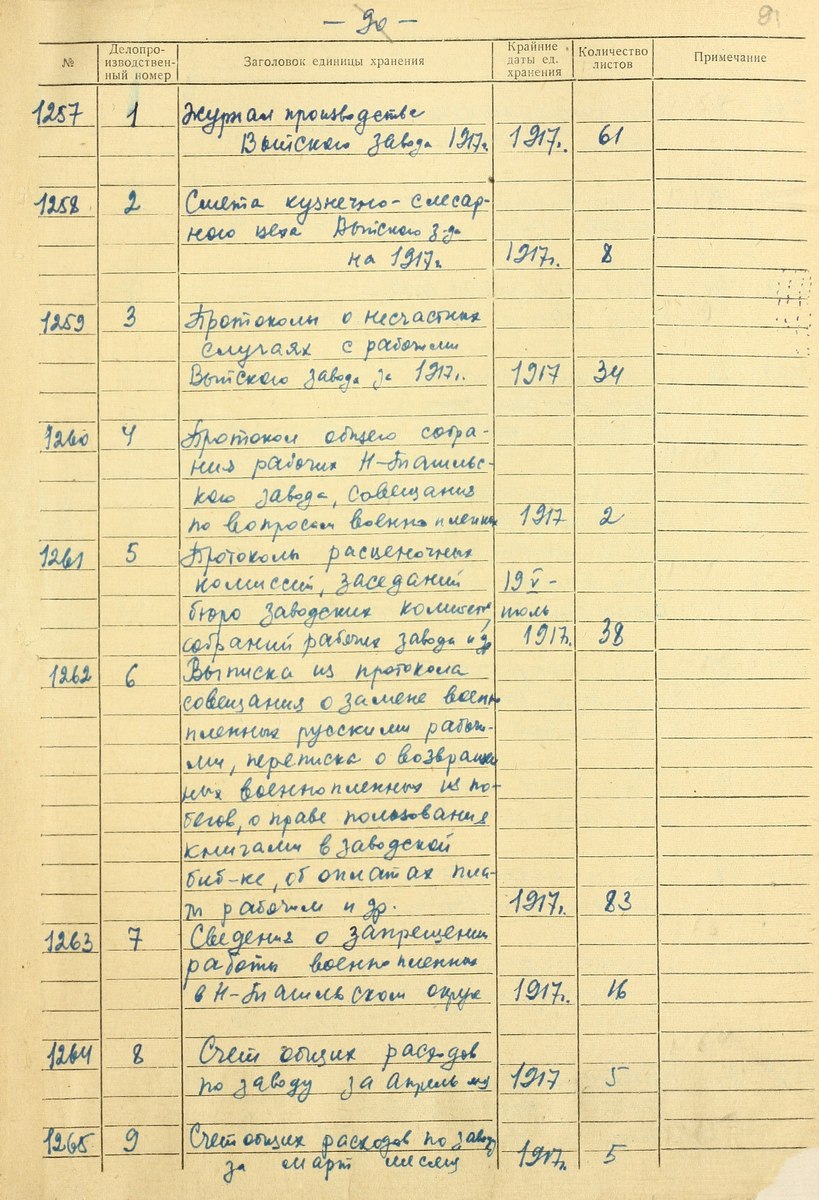 — 90 —
91
№
Делопро-
изводствен-
ный номер
Заголовок единицы хранения
Крайние
даты ед.
хранения
Количество
листов
Примечание
1257 1 Журнал производства
Выйского завода 1917г. 1917г. 61
1258 2 Смета кузнечно-слесар-
ного цеха Выйского з-да
на 1917г 1917г. 8
1259 3 Протоколы о несчастных
случаях с рабочими
Выйского завода за 1917г. 1917 34
1260 4 Протокол общего собра-
ния рабочих Н-Тагильс-
кого завода, совещания
по вопросам военнопленных 1917 2
1261 5 Протоколы расценочных
комиссий, заседаний 19 V -
бюро заводских комитетов, июль
собраний рабочих завода и др 1917г. 38
1262 6 Выписка из протокола
совещания о замене военно
пленных русскими рабочи-
ми, переписка о возвращен
ных военнопленных из по-
бегов, о праве пользования
книгами в заводской
биб-ке, об оплатах пла-
ты рабочим и др. 1917г. 83
1263 7 Сведения о запрещении
работы военнопленных
в Н-Тагильском округе 1917г. 16
1264 8 Счет общих расходов
по заводу за апрель м-ц 1917 5
1265 9 Счет общих расходов по заводу
за март месяц 1917г. 5